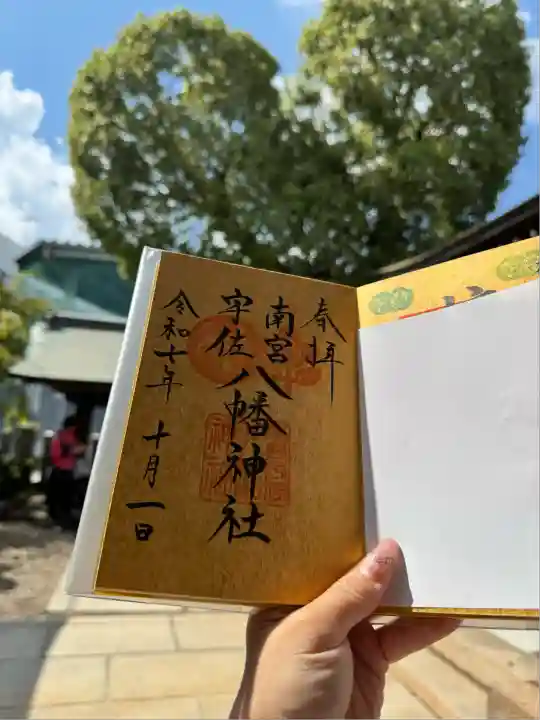 奉拝
南宮
宇佐八幡神社
令和七年 十月一日